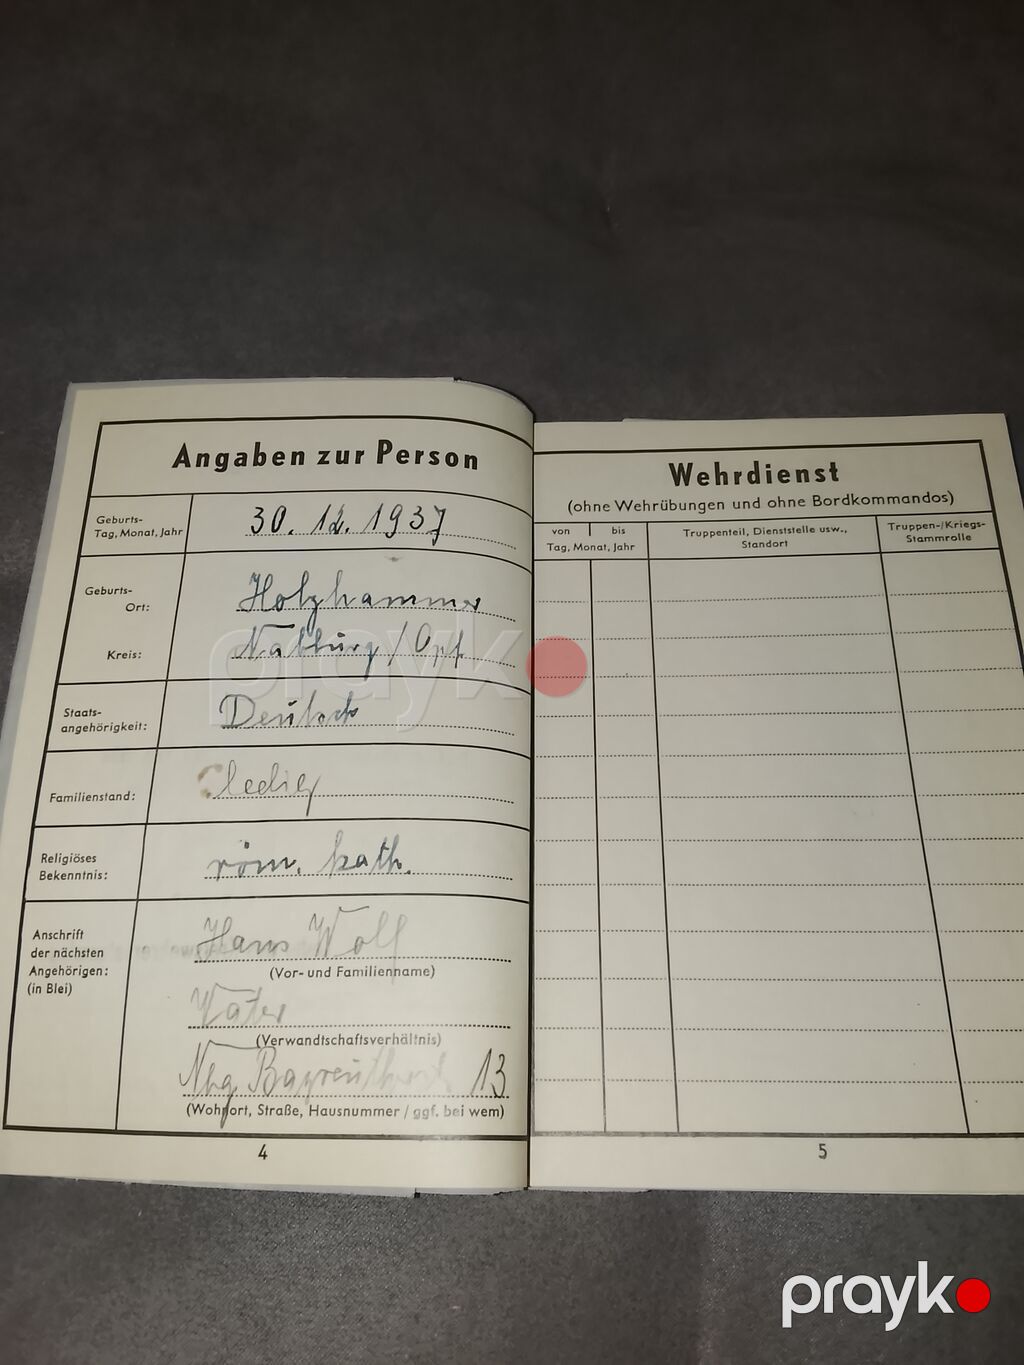 Angaben zur Person
Geburts-
Tag, Monat, Jahr
30. 12. 1937
Geburts-
Ort:
Holzhammer
Kreis:
Nabburg / Opf.
Staats-
angehörigkeit:
Deutsch
Familienstand:
ledig
Religiöses
Bekenntnis:
röm. kath.
Anschrift
der nächsten
Angehörigen:
(in Blei)
Hans Wolf
(Vor- und Familienname)
Vater
(Verwandtschaftsverhältnis)
Nbg. Bayreutherst. 13
(Wohnort, Straße, Hausnummer / ggf. bei wem)
4
Wehrdienst
(ohne Wehrübungen und ohne Bordkommandos)
von bis
Tag, Monat, Jahr
Truppenteil, Dienststelle usw.,
Standort
Truppen-/Kriegs-
Stammrolle
5
prayko
prayko